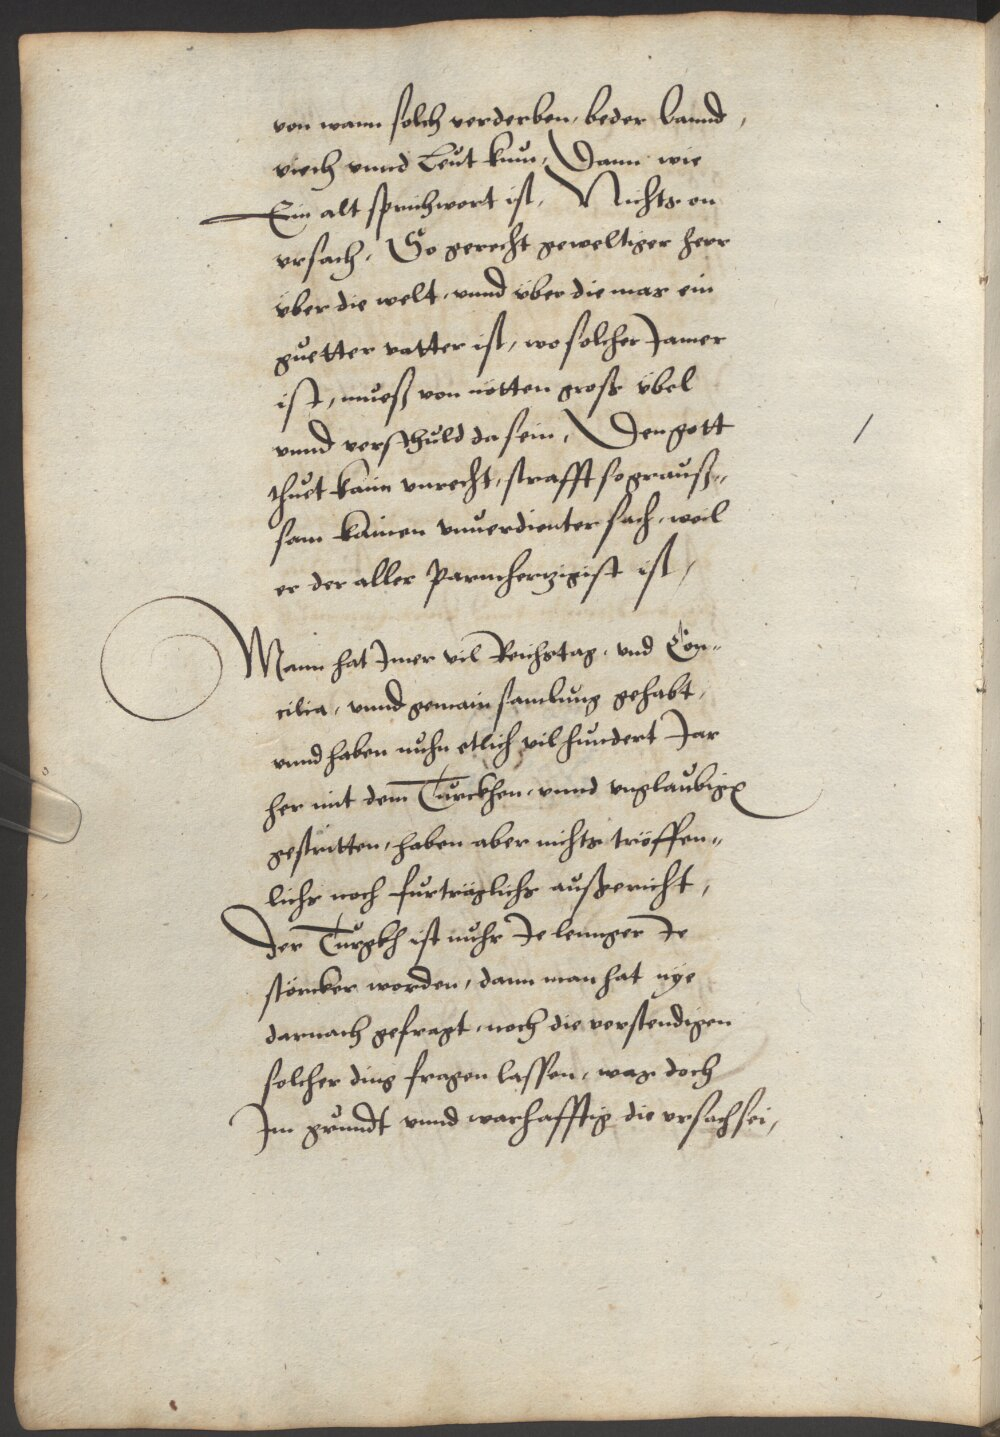 von wann solch verderben, beder lannd,
viech vnnd Leut kum, Dann wie
Ein alt sprichwort ist, Nichts on
vrsach, So gerecht geweltiger herr
über die welt, vnnd über die mas ein
guetter vatter ist, wo solcher Jamer
ist, mueß von nötten gross übel
vnnd verschuld da sein, Den gott
thuet kain vnrecht, strafft so grauß,,
sam kainen vnuerdienter sach, weil
er der aller Parmhertzigist ist,
Mann hat Jmer vil Reichstag, vnd Con,,
cilia, vnnd gemain samlung gehabt,
vnnd haben nuhn etlich vil hundert Jar
her mit dem Turckhen, vnnd vnglaubigen
gestritten, haben aber nichts tröffen,,
lichs noch furträglichs außgericht,
Der Turgkh ist nuhr Je lennger Je
störcker worden, dann man hat nÿe
darnach gefragt, noch die verstendigen
solcher ding fragen lassen, was doch
Jm grundt vnnd warhafftig die vrsach sei,